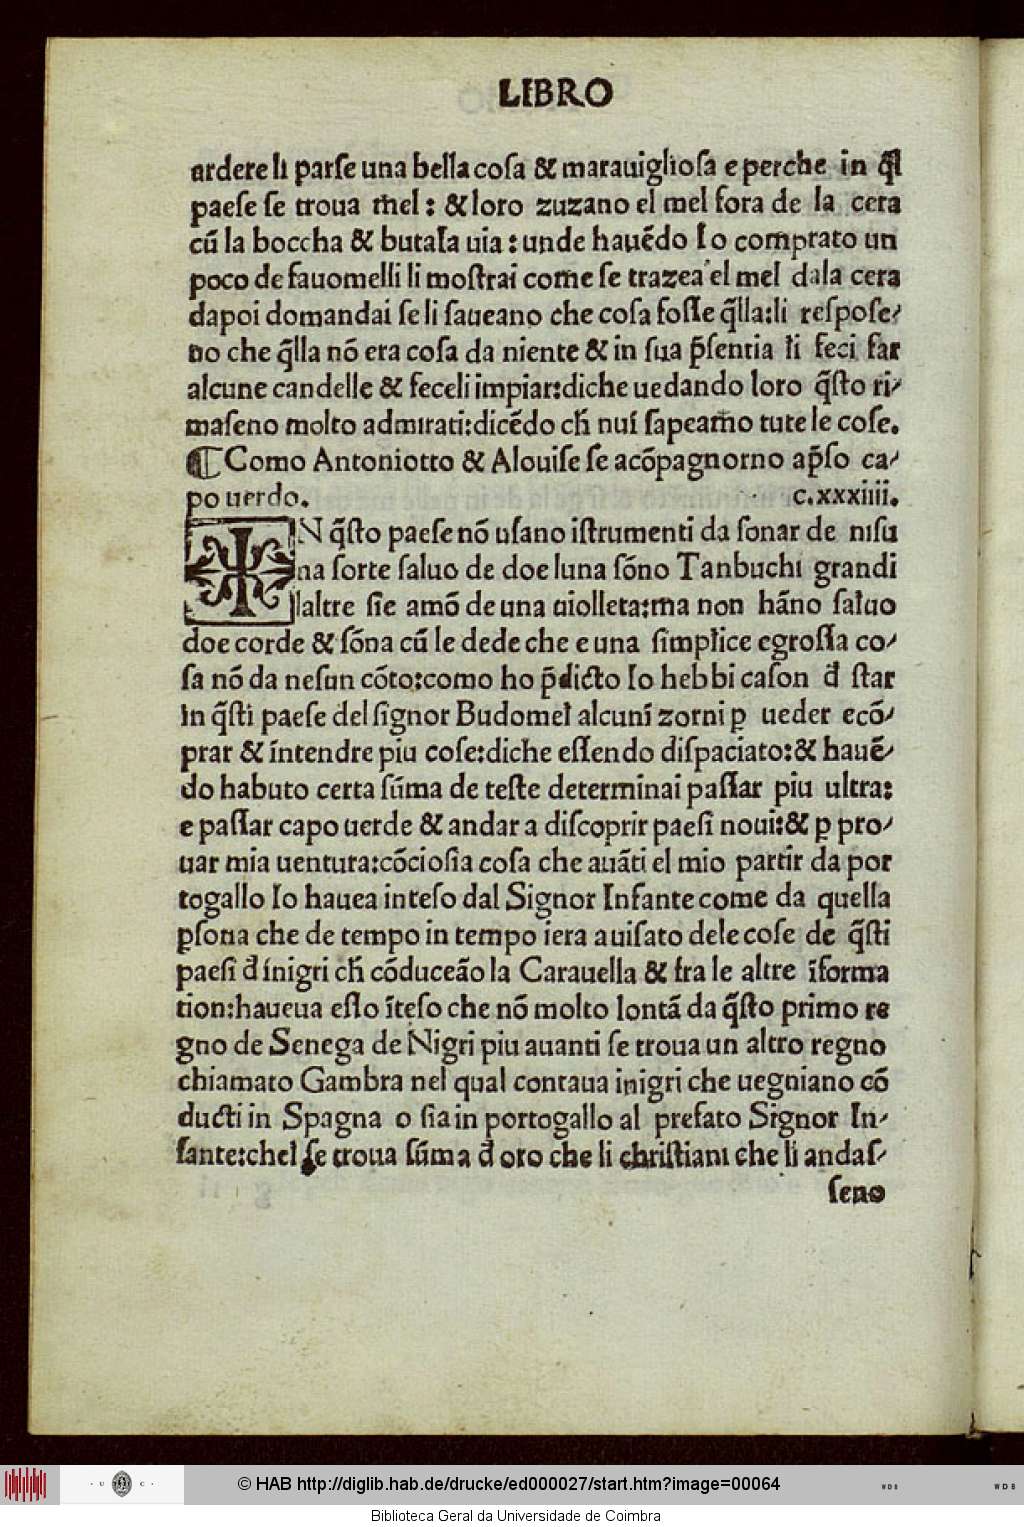 LIBRO
ardere li parſe una bella coſa & marauiglioſa e perche in q̃l
paeſe ſe troua m̃el : & loro zuzano el mel fora de la cera
cũ la boccha & butala uia : unde hauẽdo Io comprato un
poco de fauomelli li moſtrai come ſe trazea el mel dala cera
dapoi domandai ſe li ſaueano che coſa foſſe q̃lla:li reſpoſe-
no che q̃lla nõ era coſa da niente & in ſua p̃ſentia li feci far
alcune candelle & feceli impiar:diche uedando loro q̃ſto ri-
maſeno molto admirati:dicẽdo ch̃ nui ſapeamo tute le coſe.
¶ Como Antoniotto & Alouiſe ſe acõpagnorno ap̃ſo ca-
po uerdo. c.xxxiiii.
IN q̃ſto paeſe nõ uſano iſtrumenti da ſonar de niſu
na ſorte ſaluo de doe luna ſõno Tanbuchi grandi
laltre ſie amõ de una uiolleta:ma non hãno ſaluo
doe corde & ſõna cũ le dede che e una ſimplice egroſſa co-
ſa nõ da neſun cõto:como ho p̃dicto Io hebbi caſon d̃ ſtar
In q̃ſti paeſe del ſignor Budomel alcuni zorni ꝑ ueder ecõ-
prar & intendre piu coſe:diche eſſendo diſpaciato:& hauẽ-
do habuto certa ſũma de teſte determinai paſſar piu ultra:
e paſſar capo uerde & andar a diſcoprir paeſi noui:& ꝑ pro-
uar mia uentura:cõcioſia coſa che auãti el mio partir da por
togallo Io hauea inteſo dal Signor Infante come da quella
ꝑſona che de tempo in tempo iera auiſato dele coſe de q̃ſti
paeſi d̃ inigri ch̃ cõduceão la Carauella & fra le altre ĩforma
tion:haueua eſſo ĩteſo che nõ molto lontã da q̃ſto primo re
gno de Senega de Nigri piu auanti ſe troua un altro regno
chiamato Gambra nel qual contaua inigri che uegniano cõ
ducti in Spagna o ſia in portogallo al prefato Signor In-
fante:chel ſe troua ſũma d̃ oro che li chriſtiani che li andaſ-
ſeno
© HAB http://diglib.hab.de/drucke/ed000027/start.htm?image=00064
· U C ·
WDB
WDB
Biblioteca Geral da Universidade de Coimbra